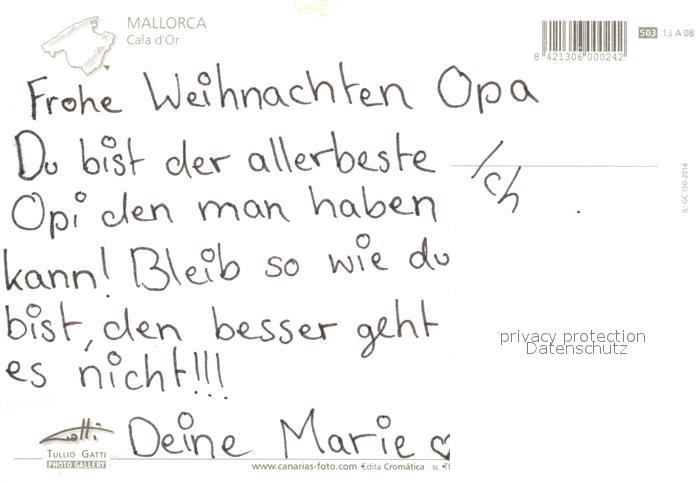 MALLORCA
Cala d'Or
503 13 A 08
8 421306 000242
Frohe Weihnachten Opa
Du bist der allerbeste
Ich
Opi den man haben
kann! Bleib so wie du
bist, den besser geht
es nicht!!!
Deine Marie ♡
privacy protection
Datenschutz
TULLIO GATTI
PHOTO GALLERY
www.canarias-foto.com €dita Cromática